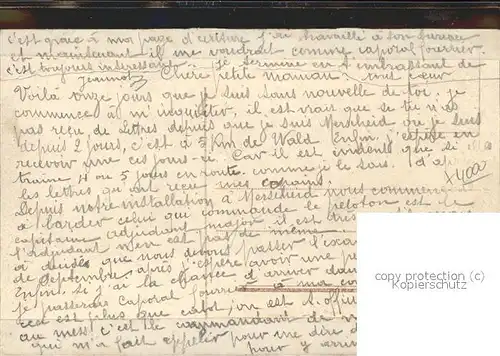 c'est grâce à ma page d'écriture j'ai travaillé à son bureau
et maintenant il me voudrait comme caporal fourrier
c'est toujours intéressant. Je termine en t'embrassant de
Jeannot Chère petite maman tout cœur
Voilà onze jours que je suis sans nouvelle de toi. je
commence à m'inquiéter, il est vrai que si tu n'as
pas reçu de lettres depuis que je suis Merscheid où je suis
depuis 2 jours, c'est à 5 Km de Wald. Enfin j'espère en
recevoir une ces jours-ci. Car il est évident que si elle
traîne 4 ou 5 jours en route. comme je le sais. d'après
les lettres qu'ont reçu mes copains.
x4000
Depuis notre installation à Merscheid nous commençons
à barder celui qui commande le peloton est le
capitaine adjudant-major il est très
l'adjudant n'en est pas de même
a décidé que nous devons passer l'exa
de Septembre, après j'espère avoir une pe
Enfin si j'ai la chance d'arriver dan
je passerais Caporal fourrier à ma co
cela est plus que cabot, on est s. offi
au mess. c'est le commandant de m
qui m'a fait appeler pour me dire d
pour y arri
copyright (protected)
Kopierschutz